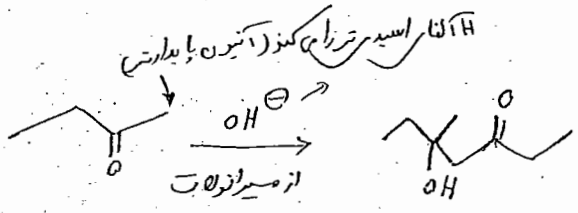 H آلفای اسیدی تر را می کند (آنیون پایدارتر)
O
OH⊖
O
OH
از مسیر انولات